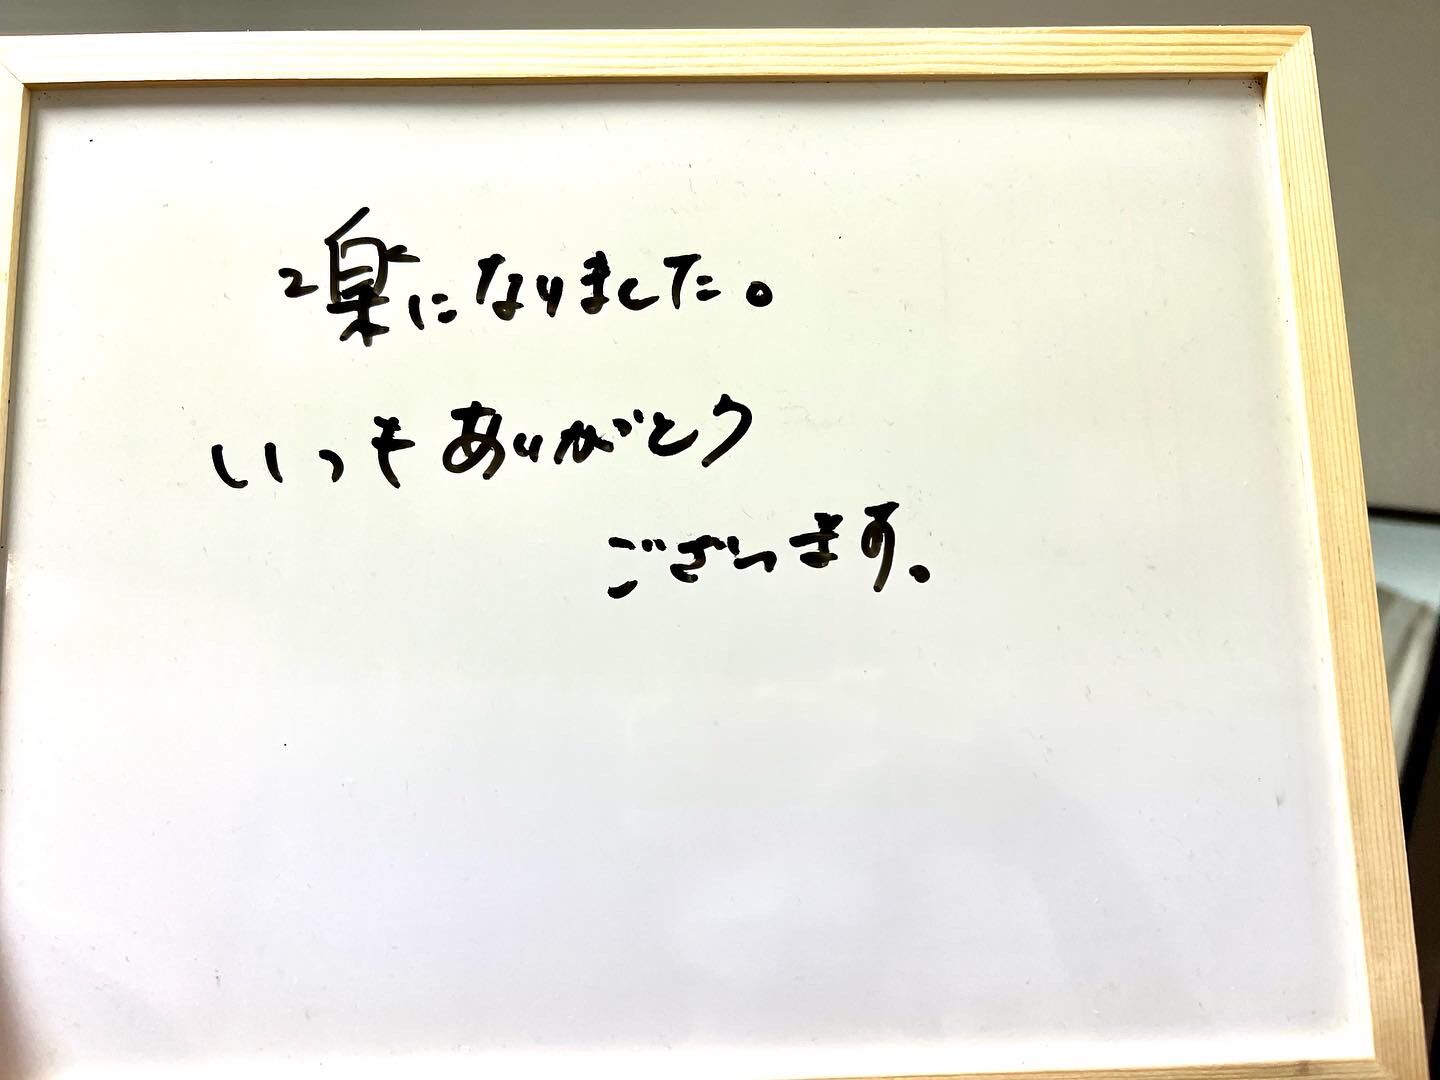 楽になりました。
いつもありがとう
ございます。